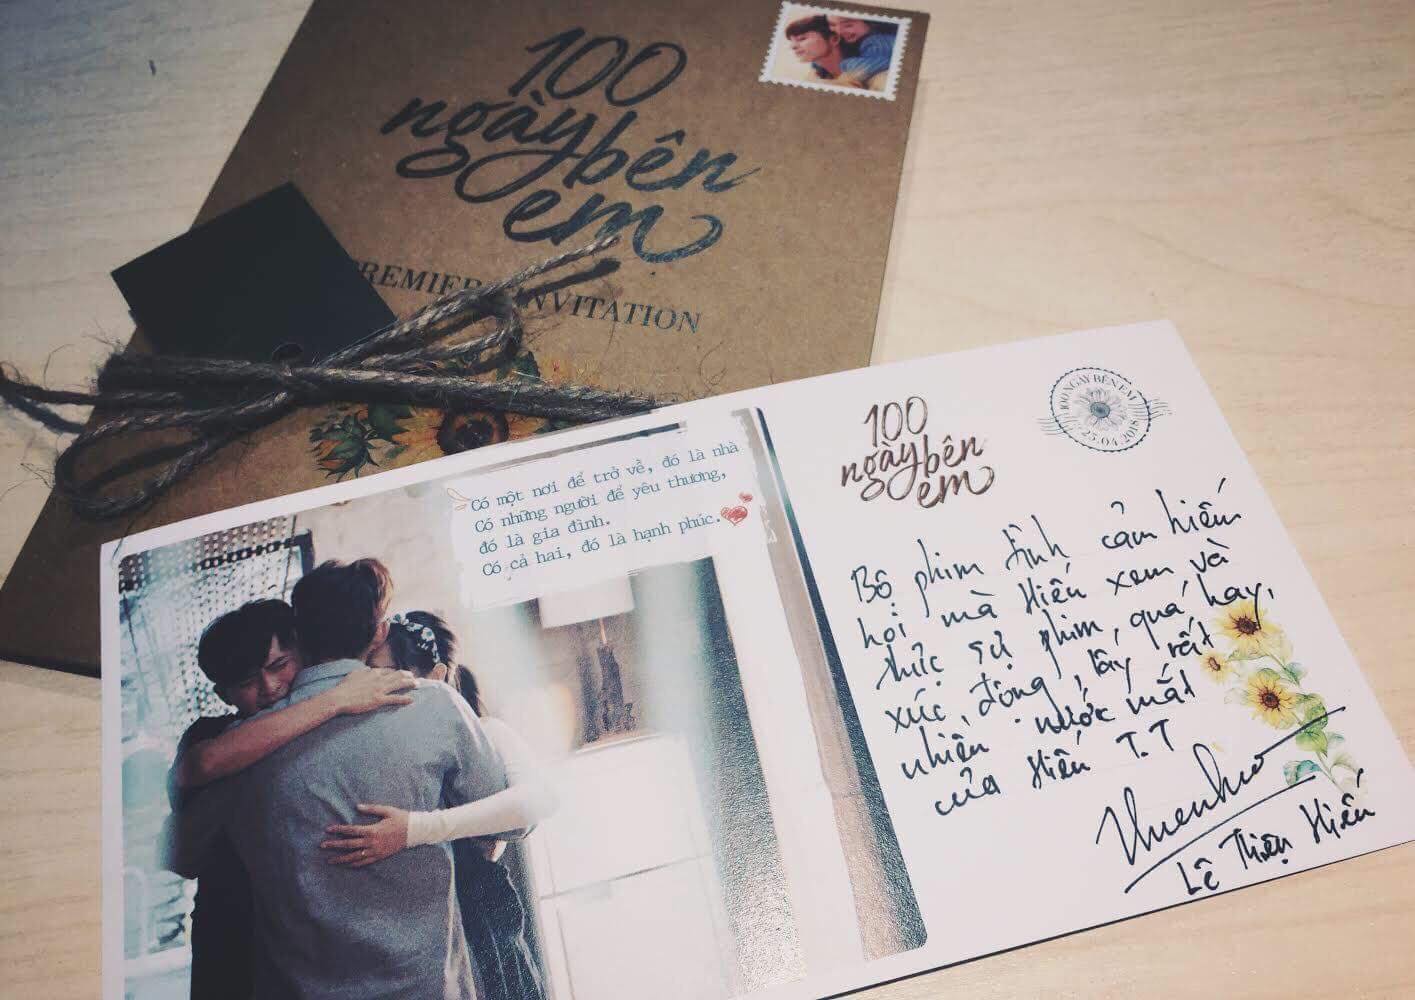 100
ngày bên
em
PREMIERE INVITATION
Có một nơi để trở về, đó là nhà
Có những người để yêu thương,
đó là gia đình.
Có cả hai, đó là hạnh phúc.
100
ngày bên
em
100 NGÀY BÊN EM
25.04.2018
Bộ phim tình cảm hiếm
hoi mà Hiếu xem và
thực sự phim quá hay,
xúc động, lấy rất
nhiên nước mắt
của Hiếu T.T
Lê Thiện Hiếu